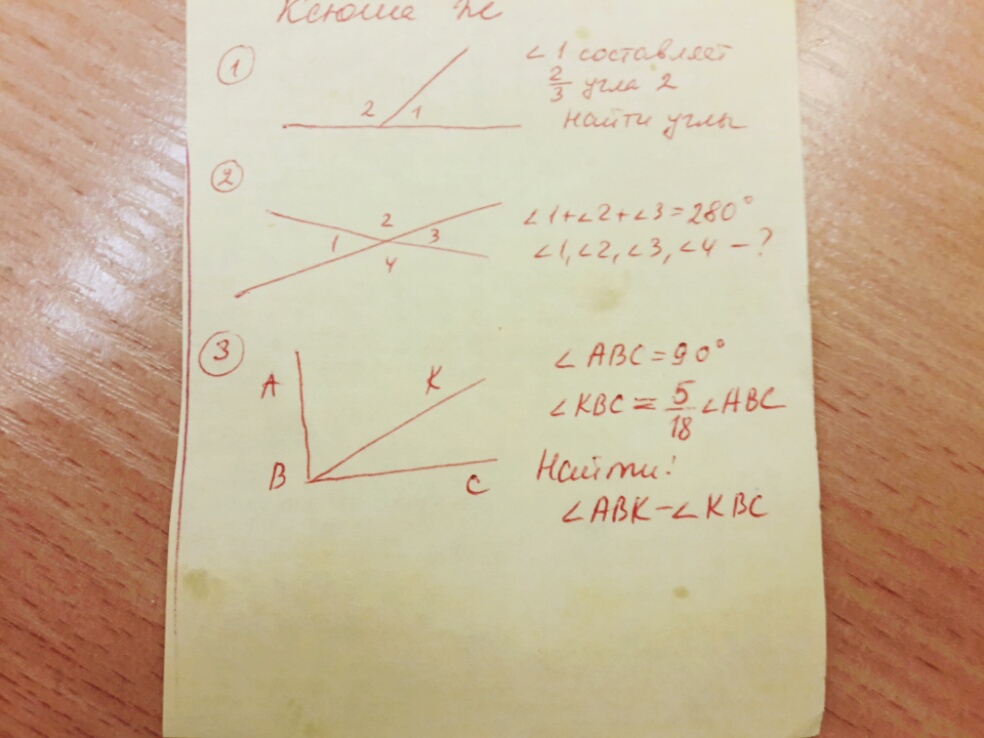 Ксюша
1
∠1 составляет
2/3 угла 2
найти углы
2 1
2
∠1+∠2+∠3=280°
∠1,∠2,∠3,∠4 – ?
2
1 3
4
3
∠ABC=90°
∠KBC = 5/18 ∠ABC
Найти:
∠ABK–∠KBC
A K
B C